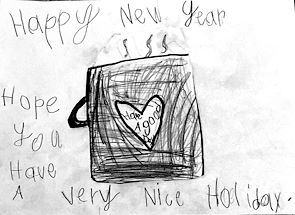 Happy New Year
Have
A good
Hope
You
Have
A Very Nice Holiday.